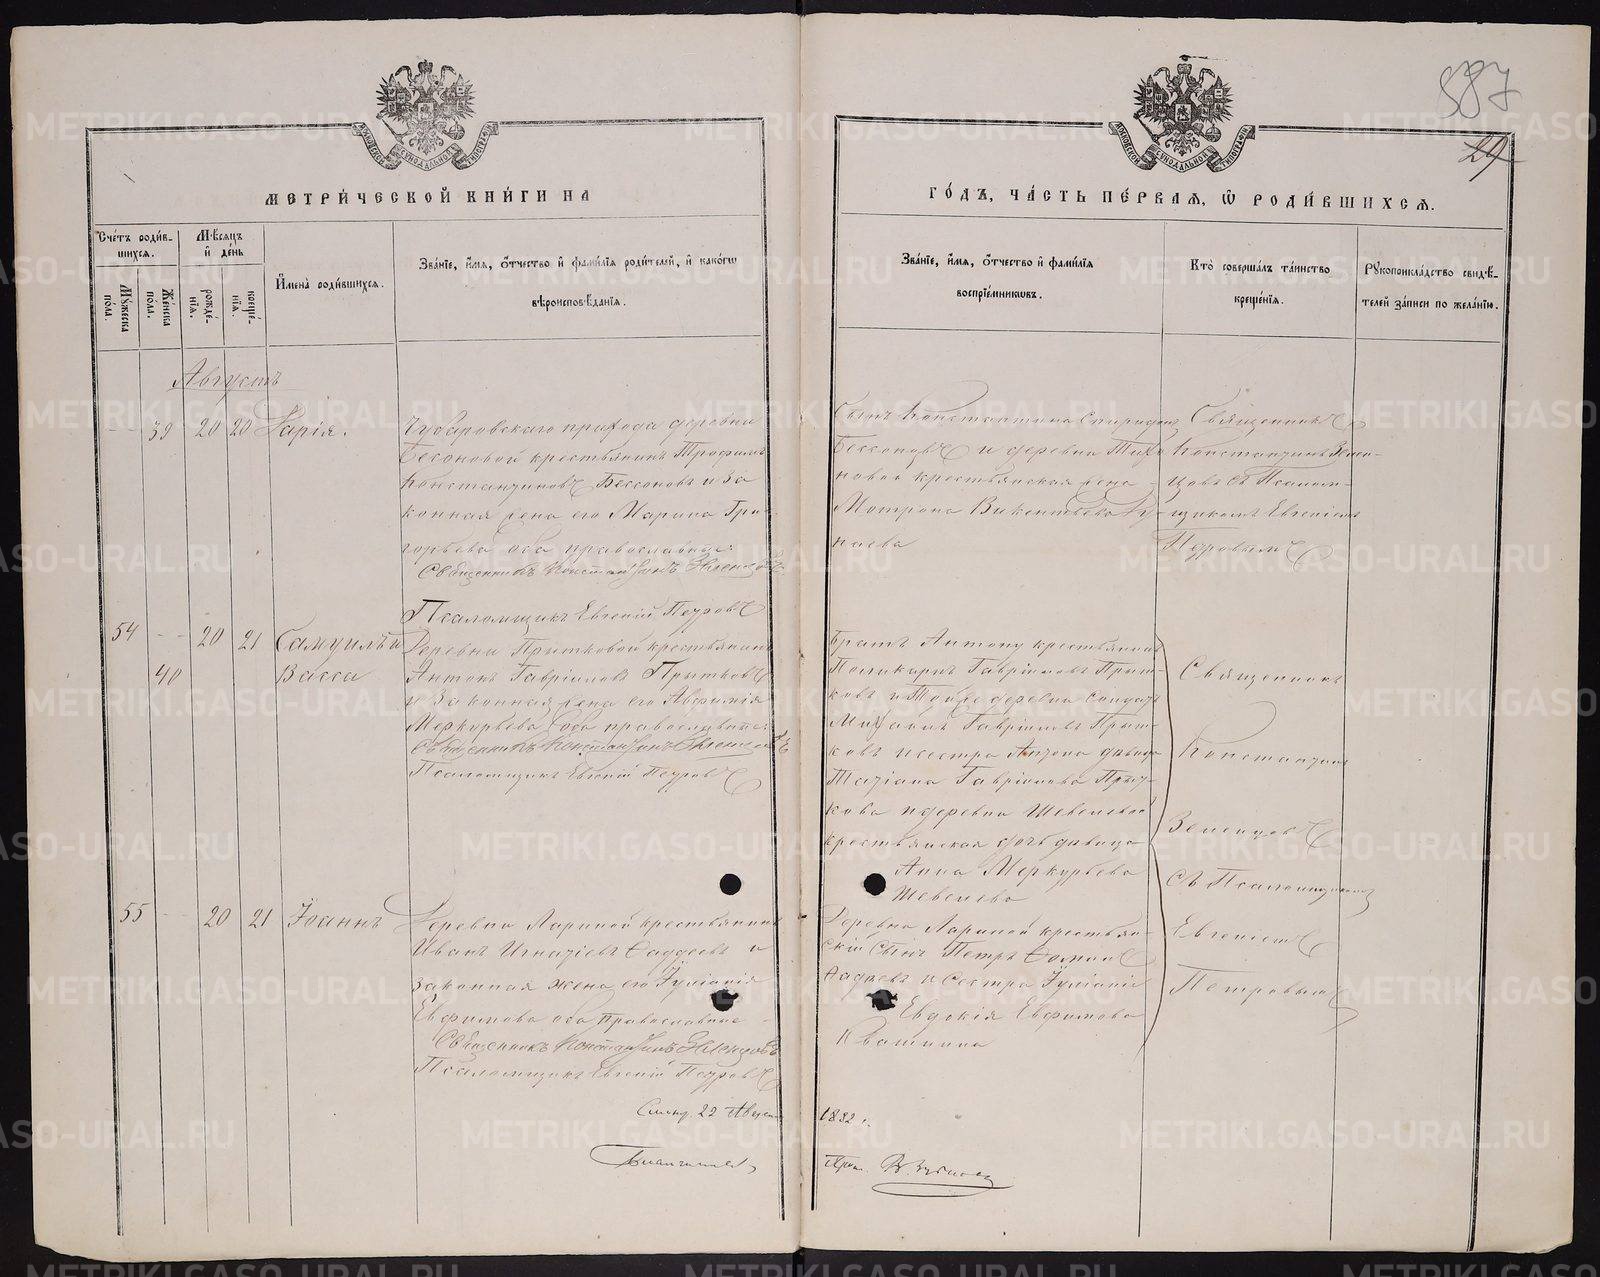 887
29
МОСКОВСКОЙ СѴНОДАЛЬНОЙ ТИПОГРАФІИ
МОСКОВСКОЙ СѴНОДАЛЬНОЙ ТИПОГРАФІИ
МЕТРИ́ЧЕСКОЙ КНИ́ГИ НА
ГО́ДЪ, ЧА́СТЬ ПЕ́РВАѦ, Ѡ РОДИ́ВШИХСѦ.
Сче́тъ роди́в-
шихсѧ.
Мѣ́сѧцъ
и де́нь
Мꙋ́жеска
по́ла.
Же́нска
по́ла.
рожде́-
нїѧ.
креще́-
нїѧ.
И҆мена̀ роди́вшихсѧ.
Зва́нїе, и҆́мѧ, ѻ҆́тчество и҆ фами́лїѧ роди́телей, и҆ како́гѡ
вѣроисповѣ́данїѧ.
Зва́нїе, и҆́мѧ, ѻ҆́тчество и҆ фами́лїѧ
воспрїе́мникѡвъ.
Кто̀ соверша́лъ та́инство
креще́нїѧ.
Рꙋкоприкла́дство свидѣ́-
телей за́писи по жела́нїю.
Августъ
39 20 20 Дарія.
Чубаровскаго прихода деревни
Бессоновой крестьянинъ Трофимъ
Константиновъ Бессоновъ и за
конная жена его Марина Гри-
горьева оба православные
Священникъ Константинъ Зеленцовъ
Псаломщикъ Евгеній Петровъ
Сынъ Константина Спиридон
Бессоновъ и деревни
новой крестьянская жена
Мотрона Викентьева
наева
Священникъ
Константинъ Зелен-
цовъ съ Псалом-
щикомъ Евгеніемъ
Петровымъ
54 20 21 Самуилъ и
40 Васса
Деревни Прытковой крестьянинъ
Антонъ Гавріиловъ Прытковъ
и законная жена его Авфимія
Меркурьева оба православные
Священникъ Константинъ Зеленцовъ
Псаломщикъ Евгеній Петровъ
Братъ Антону крестьянинъ
Поликарпъ Гавріиловъ Прыт-
ковъ и той же деревни солдатъ
Михаилъ Гавріиловъ Прыт-
ковъ и сестра Антона дѣвица
Татіана Гавріилова Прыт-
кова и деревни Шевелевой
крестьянская дочь дѣвица
Анна Меркурьева
Шевелева
Священникъ
Константинъ
Зеленцовъ
съ Псаломщикомъ
Евгеніемъ
Петровымъ
55 20 21 Іоаннъ
Деревни Лариной крестьянинъ
Иванъ Игнатіевъ Фаддеевъ и
законная жена его Іуліанія
Евфимова оба православные
Священникъ Константинъ Зеленцовъ
Псаломщикъ Евгеній Петровъ
Деревни Лариной крестьян-
скій сынъ Петръ Фоминъ
Фадѣевъ и сестра Іуліаніи
Евдокія Евфимова
Квашнина
22 Августа 1882 г.